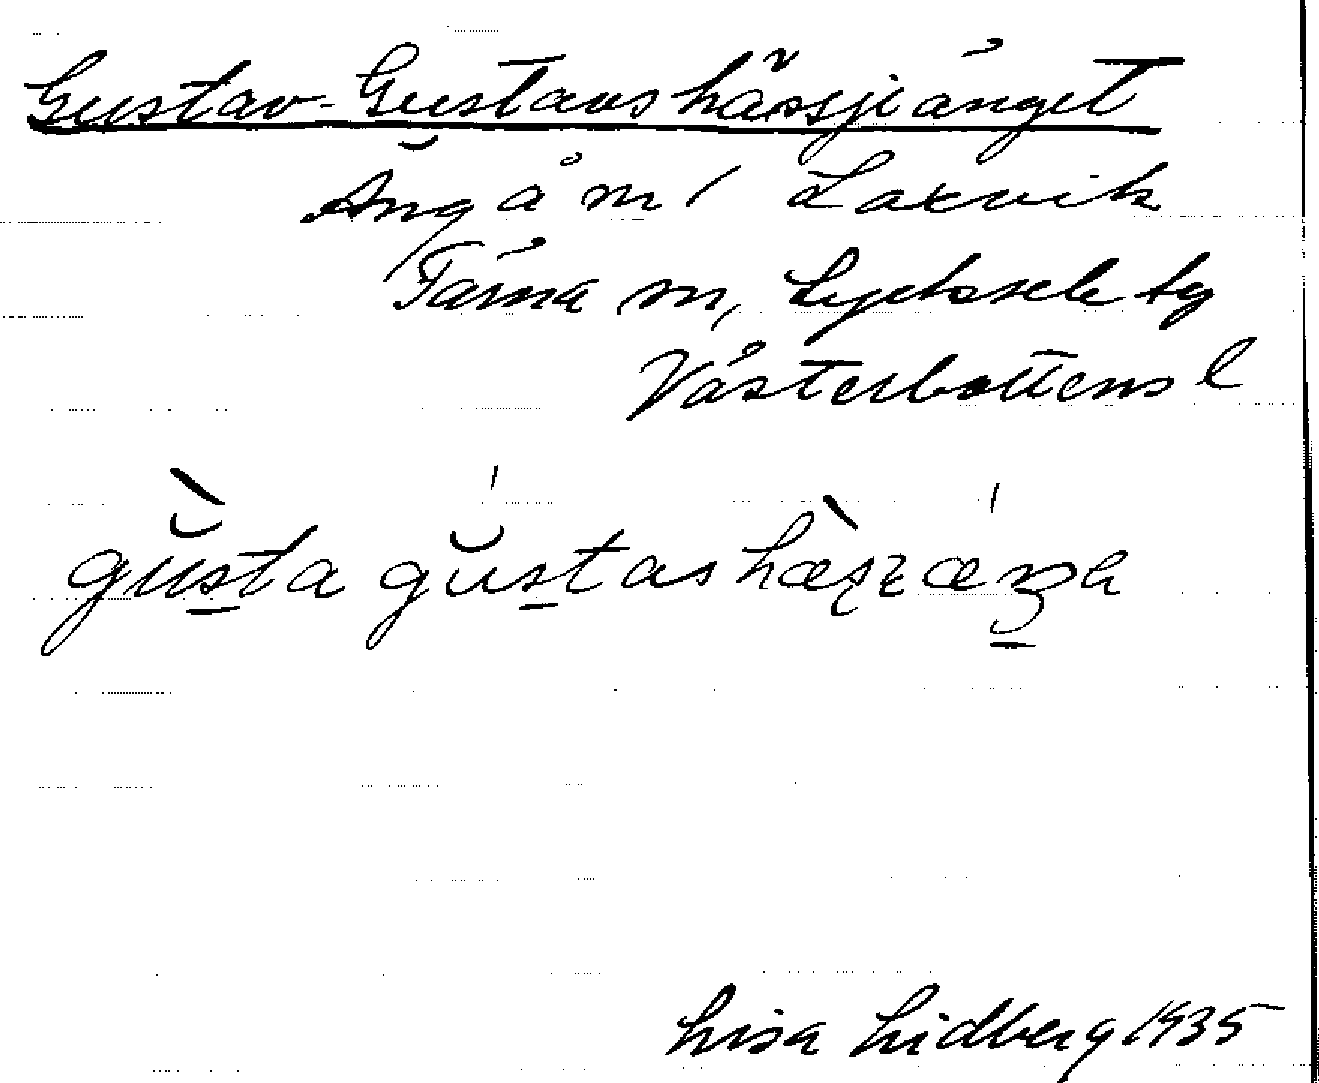 Gustav-Gustavshässjeänget
Äng å n/ Laxvik
Tärna sn, Lycksele tg
Västerbottens l
gŭsta gŭstashæșzæŋa
Lisa Lidberg 1935